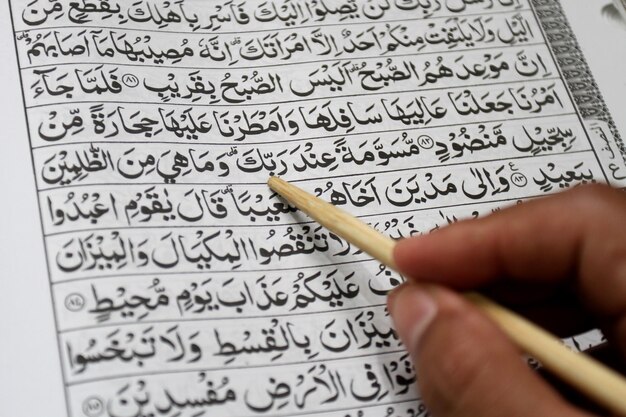 رَبِّكَ لَنْ يَّصِلُوْٓا اِلَيْكَ فَاَسْرِ بِاَهْلِكَ بِقِطْعٍ مِّنَ
الَّيْلِ وَلَا يَلْتَفِتْ مِنْكُمْ اَحَدٌ اِلَّا امْرَاَتَكَ ۗ اِنَّهٗ مُصِيْبُهَا مَآ اَصَابَهُمْ ۗ
اِنَّ مَوْعِدَهُمُ الصُّبْحُ ۗ اَلَيْسَ الصُّبْحُ بِقَرِيْبٍ ٨١ فَلَمَّا جَآءَ
اَمْرُنَا جَعَلْنَا عَالِيَهَا سَافِلَهَا وَاَمْطَرْنَا عَلَيْهَا حِجَارَةً مِّنْ
سِجِّيْلٍ مَّنْضُوْدٍ ٨٢ مُّسَوَّمَةً عِنْدَ رَبِّكَ ۗ وَمَا هِيَ مِنَ الظّٰلِمِيْنَ
بِبَعِيْدٍ ٨٣ وَاِلٰى مَدْيَنَ اَخَاهُمْ شُعَيْبًا ۗ قَالَ يٰقَوْمِ اعْبُدُوا
وَلَا تَنْقُصُوا الْمِكْيَالَ وَالْمِيْزَانَ
عَلَيْكُمْ عَذَابَ يَوْمٍ مُّحِيْطٍ ٨٤
بِالْقِسْطِ وَلَا تَبْخَسُوا
فِى الْاَرْضِ مُفْسِدِيْنَ ٨٥